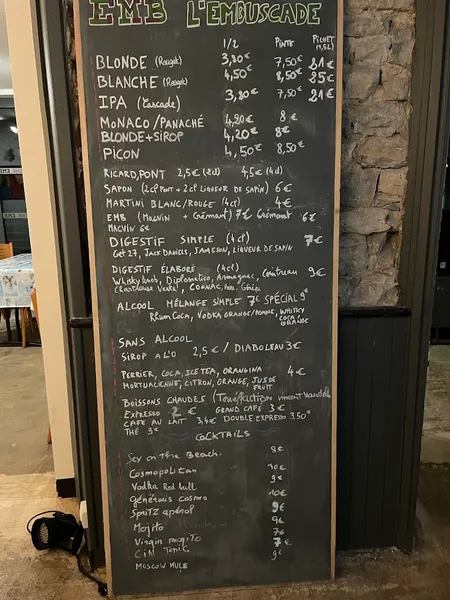 EMB L'EMBUSCADE
1/2 PINTE PICHET (1,5L)
BLONDE (Rouget) 3,80€ 7,50€ 21€
BLANCHE (Rouget) 4,50€ 8,50€ 25€
IPA (Cascade) 3,80€ 7,50€ 21€
MONACO/PANACHÉ 4,20€ 8€
BLONDE+SIROP 4,20€ 8€
PICON 4,50€ 8,50€
RICARD, PONT 2,5€ (2cl) 4,5€ (4cl)
SAPON (2cl Pont + 2cl LIQUEUR DE SAPIN) 6€
MARTINI BLANC/ROUGE (4cl) 4€
EMB (MACVIN + CRÉMANT) 7€ CRÉMANT 6€
MACVIN 6€
DIGESTIF SIMPLE (4cl) 7€
GET 27, JACK DANIELS, JAMESON, LIQUEUR DE SAPIN
DIGESTIF ÉLABORÉ (4cl)
Diplomatico, Armagnac, Cointreau 9€
COGNAC
ALCOOL MÉLANGE SIMPLE 7€ SPÉCIAL 9€
Rhum COCA, VODKA ORANGE/POMME, WHISKY
COCA/
ORANGE
SANS ALCOOL
SIROP A L'O 2,5€ / DIABOLEAU 3€
PERRIER, COCA, ICE TEA, ORANGINA 4€
MORTUACIENNE, CITRON, ORANGE, JUS DE
FRUIT
BOISSONS CHAUDES (Torréfaction vincent
EXPRESSO 2€ GRAND CAFÉ 3€
CAFE AU LAIT 3,4€ DOUBLE EXPRESSO 3.50€
THÉ 3€
COCKTAILS
Sex on the Beach. 8€
Cosmopolitan 10€
Vodka Red bull 9€
généreus cosmo 10€
Spritz apérol 9€
Mojito 9€
Virgin mojito 7€
Gin Tonic 7€
MOSCOW MULE 9€